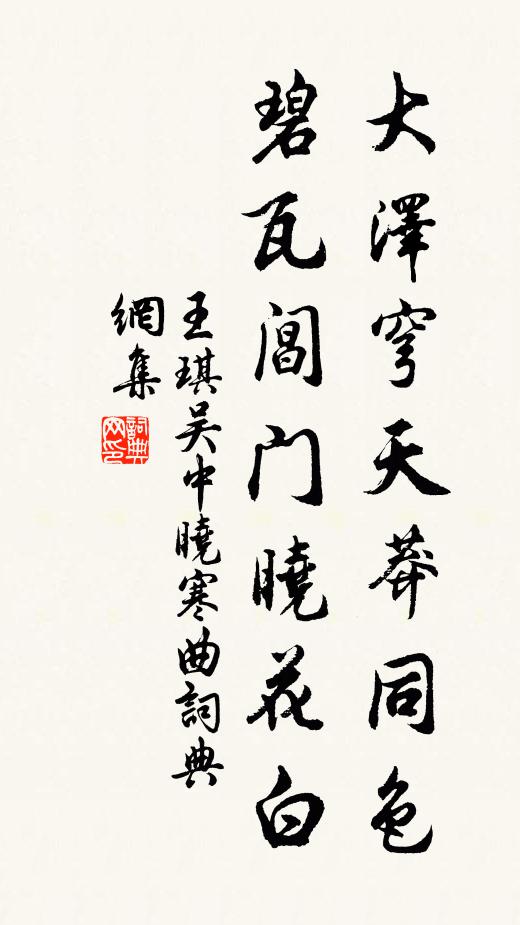 大澤穹天莽同色
碧瓦閶門曉花白
王琪吴中曉寒曲詞典
網集
詞典
网印